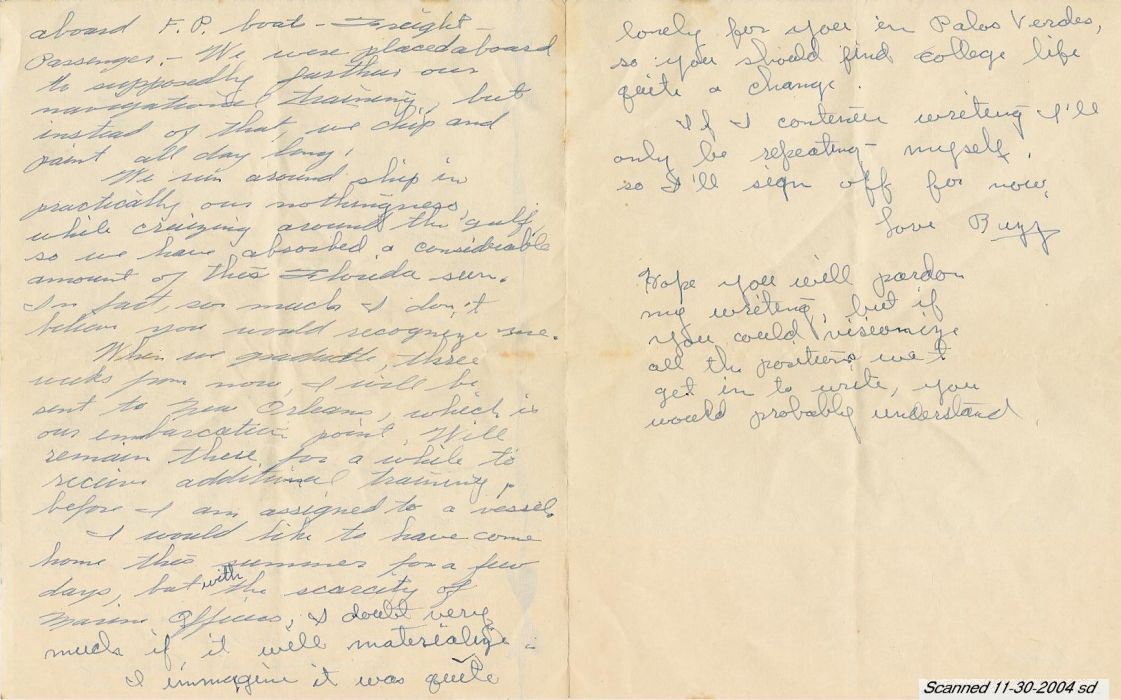 aboard F.P. boats - Freight -
Passenger. - We were placed aboard
to supposedly further our
navigational training, but
instead of that, we chip and
paint all day long.
We run around ship in
practically our nothingness,
while cruizing around the gulf,
so we have absorbed a considerable
amount of this Florida sun.
In fact, so much I don't
believe you would recognize me.
When we graduate, three
weeks from now, I will be
sent to New Orleans, which is
our embarcation point. Will
remain there for a while to
receive additional training,
before I am assigned to a vessel.
I would like to have come
home this summer for a few
days, but with the scarcity of
Marine Officers, I doubt very
much if it will materialize.
I immagine it was quite
lonely for you in Palos Verdes,
so you should find college life
quite a change.
If I contenue writing I'll
only be repeating myself,
so I'll sign off for now,
Love Buzz
Hope you will pardon
my writing, but if
you could viseonize
all the positions we
get in to write, you
would probably understand.
Scanned 11-30-2004 sd